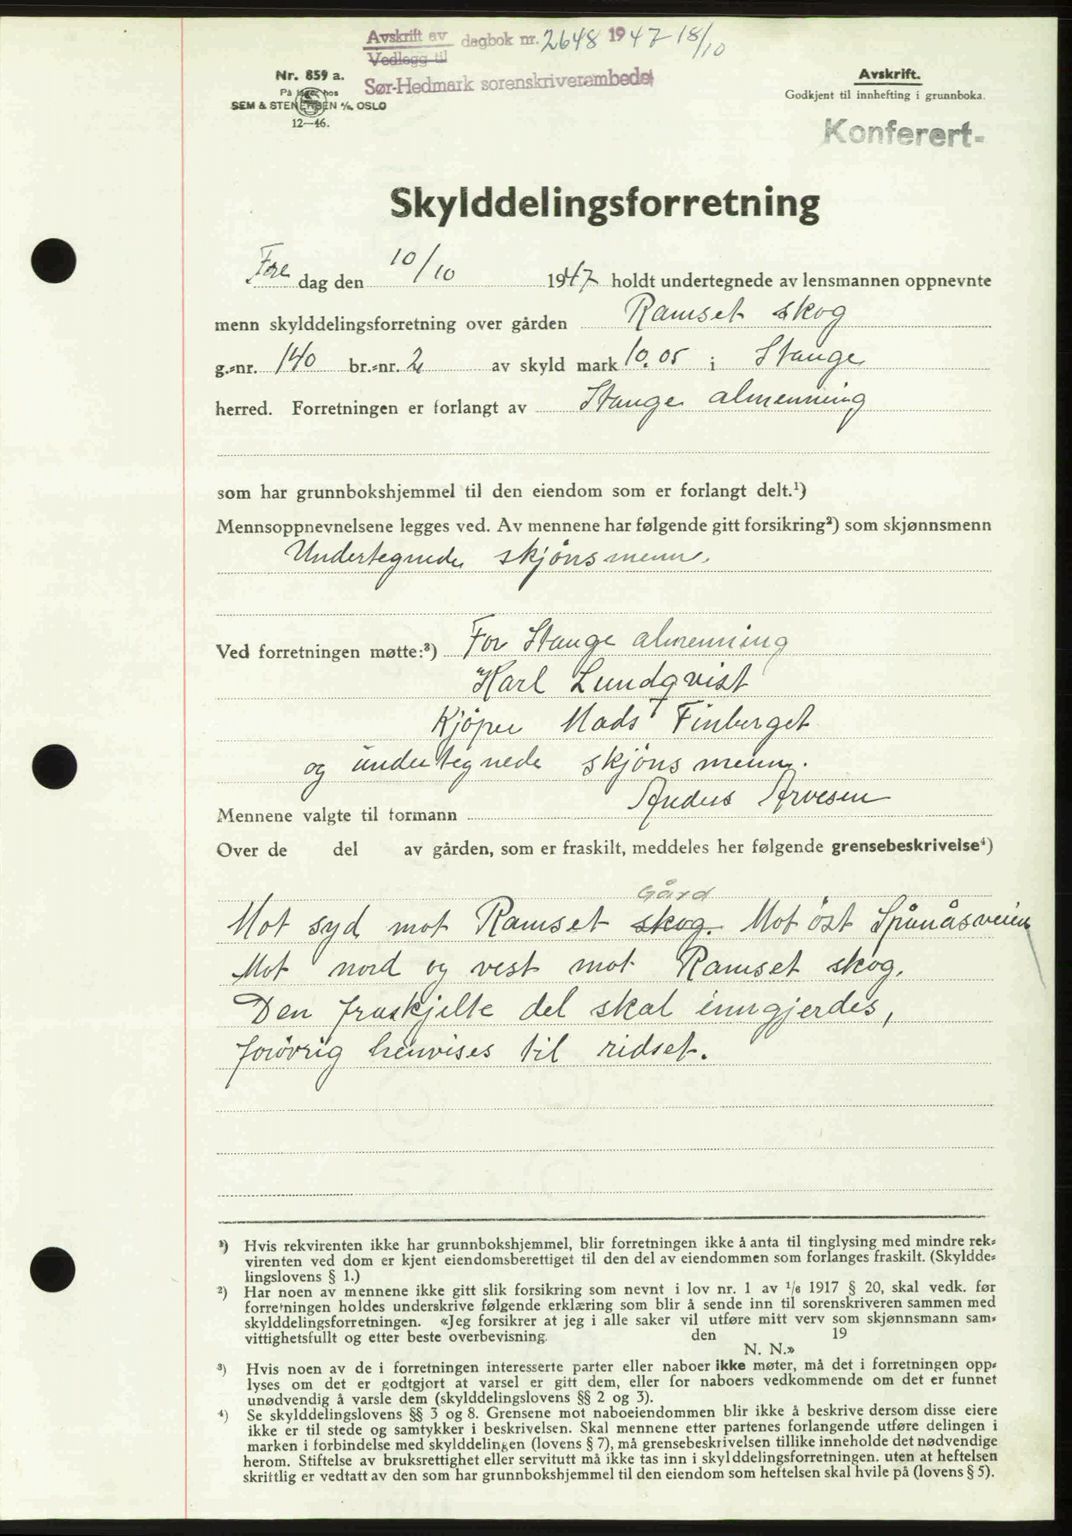 Avskrift av
Vedlegg til
dagbok nr. 2648 1947 18/10
Sør-Hedmark sorenskriverembede
Nr. 859 a.
På lager hos
SEM & STENERSEN A/S, OSLO
12—46.
Avskrift.
Godkjent til innhefting i grunnboka.
Konferert-
Skylddelingsforretning
Fre dag den 10/10 1947 holdt undertegnede av lensmannen oppnevnte
menn skylddelingsforretning over gården Ramset skog
g.-nr. 140 br.-nr. 2 av skyld mark 10.05 i Stange
herred. Forretningen er forlangt av Stange almenning
som har grunnbokshjemmel til den eiendom som er forlangt delt.¹)
Mennsoppnevnelsene legges ved. Av mennene har følgende gitt forsikring²) som skjønnsmenn
Undertegnede skjönsmenn.
Ved forretningen møtte:³) For Stange almenning
Karl Lundqvist
Kjöper Mads Finberget
og undertegnede skjönsmenn.
Mennene valgte til formann Anders Arvesen
Over de del av gården, som er fraskilt, meddeles her følgende grensebeskrivelse⁴)
Gård
Mot syd mot Ramset skog. Mot öst Spånåsveien
Mot nord og vest mot Ramset skog.
Den fraskjelte del skal inngjerdes,
forövrig henvises til ridset.
¹) Hvis rekvirenten ikke har grunnbokshjemmel, blir forretningen ikke å anta til tinglysing med mindre rek-
virenten ved dom er kjent eiendomsberettiget til den del av eiendommen som forlanges fraskilt. (Skyldde-
lingslovens § 1.)
²) Har noen av mennene ikke gitt slik forsikring som nevnt i lov nr. 1 av 1/6 1917 § 20, skal vedk. før
forretningen holdes underskrive følgende erklæring som blir å sende inn til sorenskriveren sammen med
skylddelingsforretningen. «Jeg forsikrer at jeg i alle saker vil utføre mitt verv som skjønnsmann sam-
vittighetsfullt og etter beste overbevisning. den 19
N. N.»
³) Hvis noen av de i forretningen interesserte parter eller naboer ikke møter, må det i forretningen opp-
lyses om det er godtgjort at varsel er gitt dem, eller for naboers vedkommende om det er funnet
unødvendig å varsle dem (skylddelingslovens §§ 2 og 3).
⁴) Se skylddelingslovens §§ 3 og 8. Grensene mot naboeiendommen blir ikke å beskrive dersom disse eiere
ikke er til stede og samtykker i beskrivelsen. Skal mennene etter partenes forlangende utføre delingen i
marken i forbindelse med skylddelingen (lovens § 7), må grensebeskrivelsen tillike inneholde det nødvendige
herom. Stiftelse av bruksrettighet eller servitutt må ikke tas inn i skylddelingsforretningen. uten at heftelsen
skriftlig er vedtatt av den som har grunnbokshjemmel til den eiendom som heftelsen skal hvile på (lovens § 5).